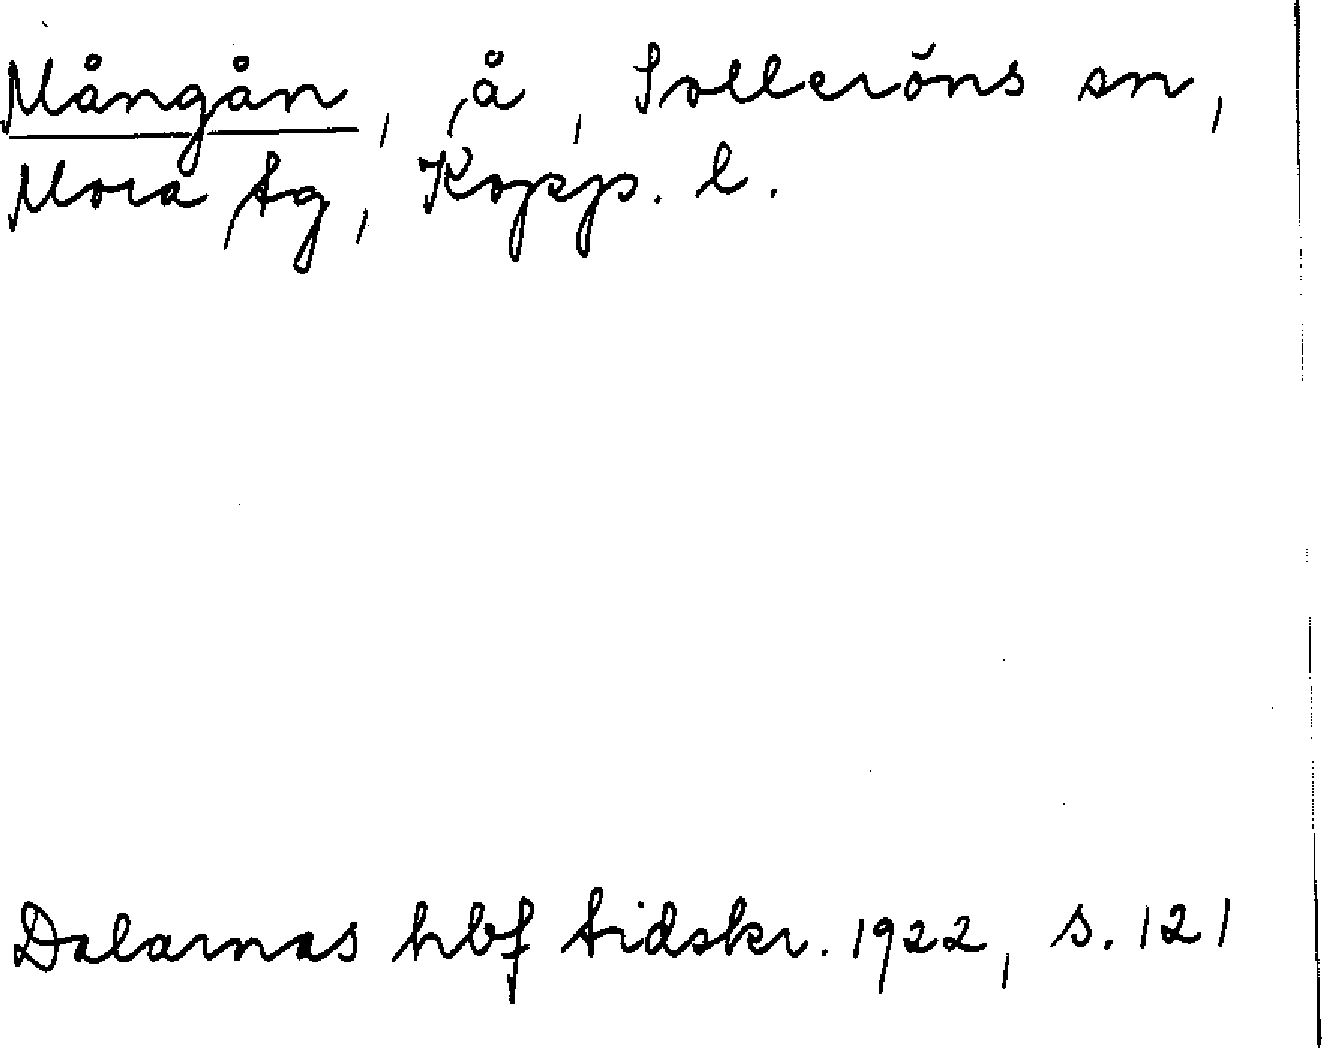 Mångån, å, Solleröns sn,
Mora tg, Kopp. l.
Dalarnas hbf tidskr. 1922, s. 121